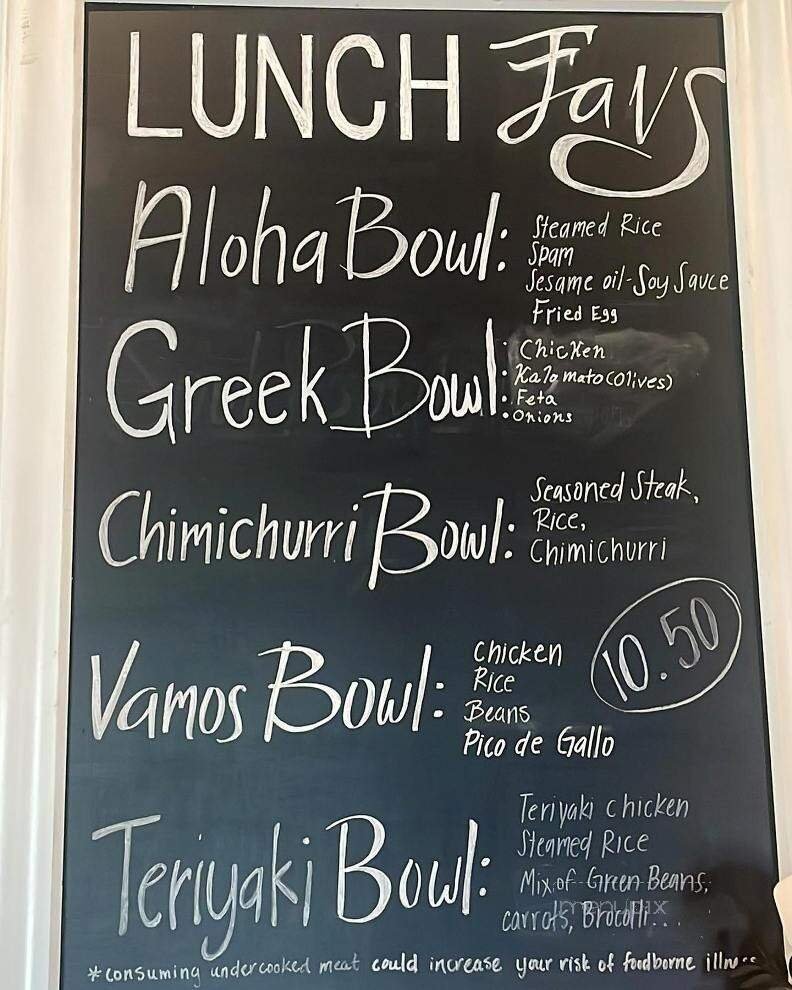 LUNCH Favs
Aloha Bowl:
Steamed Rice
Spam
Sesame oil-Soy Sauce
Fried Egg
Greek Bowl:
• Chicken
• Kalamato (Olives)
• Feta
• Onions
Chimichurri Bowl:
Seasoned Steak,
Rice,
Chimichurri
10.50
Vamos Bowl:
Chicken
Rice
Beans
Pico de Gallo
Teriyaki Bowl:
Teriyaki chicken
Steamed Rice
Mix of Green Beans,
carrots, Brocolli...
menupix
*consuming undercooked meat could increase your risk of foodborne